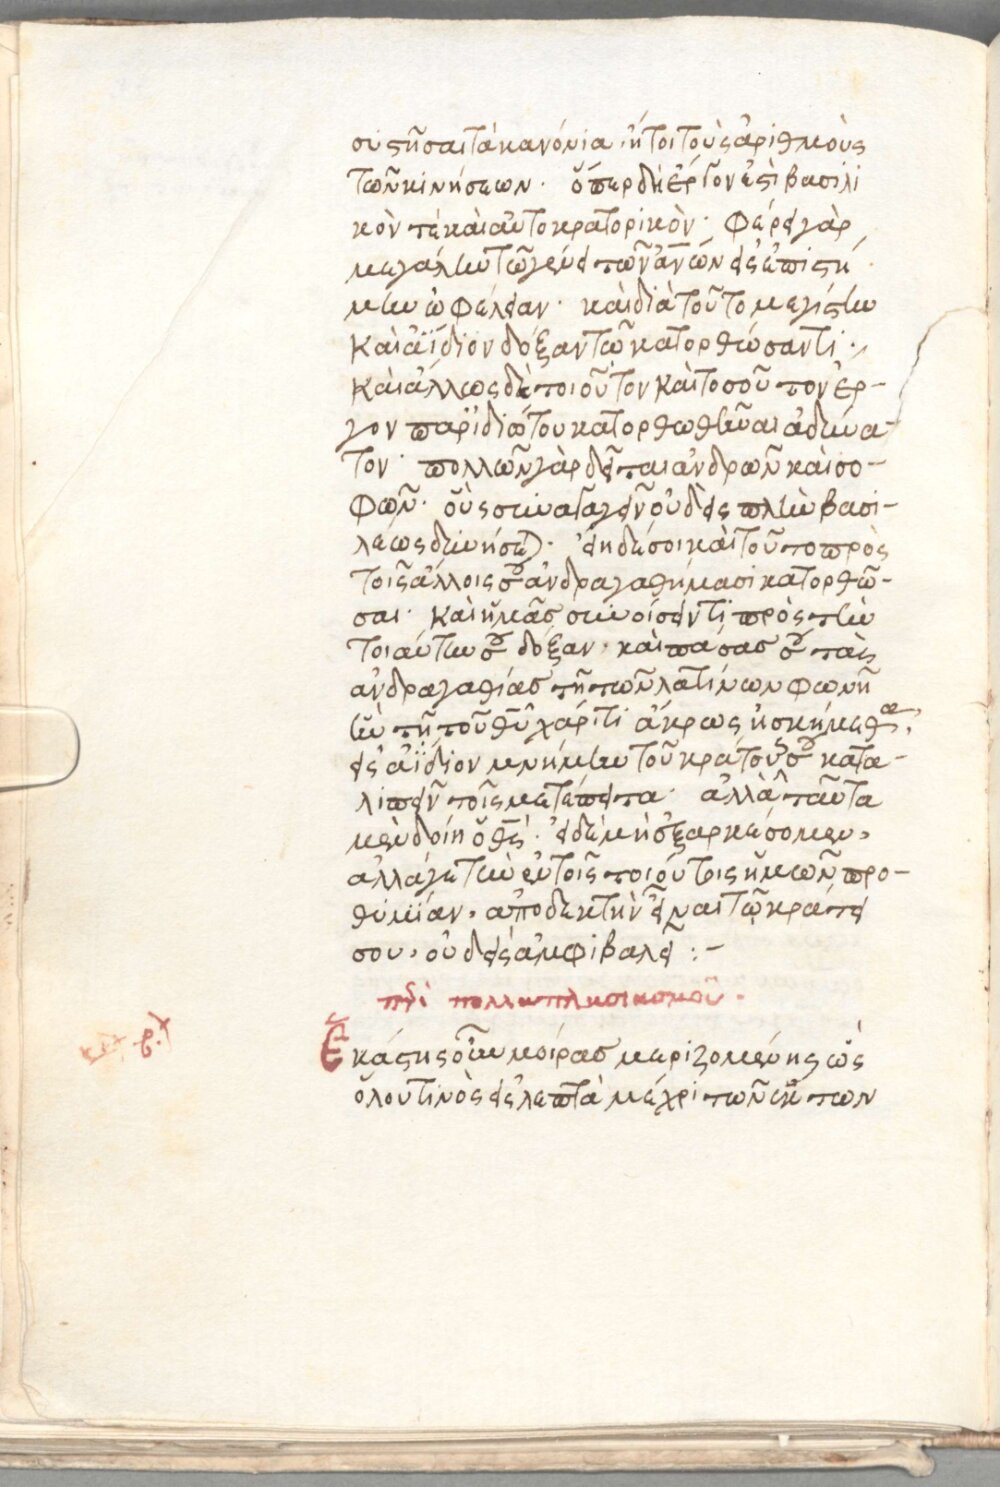 συστῆσαι τὰ κανόνια ἤτοι τοὺς ἀριθμοὺς
τῶν κινήσεων· ὅπερ δὴ ἔργον ἐστὶ βασιλι
κὸν τε καὶ αὐτοκρατορικὸν· φέρει γὰρ
μεγάλην τῷ γένει τῶν ἀνῶν εἰς ἐπιστή
μην ὠφέλειαν· καὶ διὰ τοῦτο μεγίστην
καὶ ἀΐδιον δόξαν τῷ κατορθώσαντι·
καὶ ἄλλως δὲ τοιοῦτον καὶ τοσοῦτον ἔρ-
γον παρ' ἰδιώτου κατορθωθῆναι ἀδύνα-
τον· πολλῶν γὰρ δεῖται ἀνδρῶν καὶ σο-
φῶν· οὓς συναγαγεῖν οὐδεὶς πλὴν βασι-
λέως δυνήσεται· εἴη δέ σοι καὶ τοῦτο πρὸς
τοῖς ἄλλοις σου ἀνδραγαθήμασι κατορθῶ-
σαι· καὶ ἡμᾶς συνοίσειν τι πρὸς τὴν
τοιαύτην σου δόξαν· καὶ πάσας σου τὰς
ἀνδραγαθίας τῇ τῶν λατίνων φωνῇ
ἣν τῇ τοῦ θυ χάριτι ἄκρως ἠσκήμεθα,
εἰς ἀΐδιον μνήμην τοῦ κράτους σου κατα-
λιπεῖν τοῖς μετέπειτα· ἀλλὰ ταῦτα
μὲν δοίη ὁ θς· εἰ δὲ μὴ ἐξαρκέσομεν,
ἀλλά γε τὴν ἐν τοῖς τοιούτοις ἡμῶν προ-
θυμίαν, ἀποδεκτὴν εἶναι τῷ κράτει
σου, οὐδεὶς ἀμφιβαλεῖ :-
περὶ πολλαπλασιασμοῦ·
β·
Ἑκάστης οὖν μοίρας μεριζομένης ὡς
ὅλου τινὸς εἰς λεπτὰ μέχρι τῶν ἕκτων